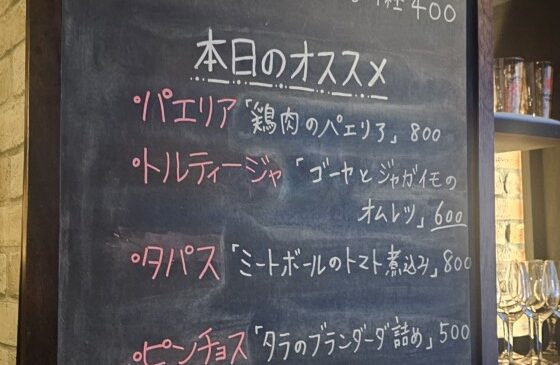 400
本日のオススメ
・パエリア「鶏肉のパエリア」800
・トルティージャ「ゴーヤとジャガイモの
オムレツ」600
・タパス「ミートボールのトマト煮込み」800
・ピンチョス「タラのブランダーダ詰め」500